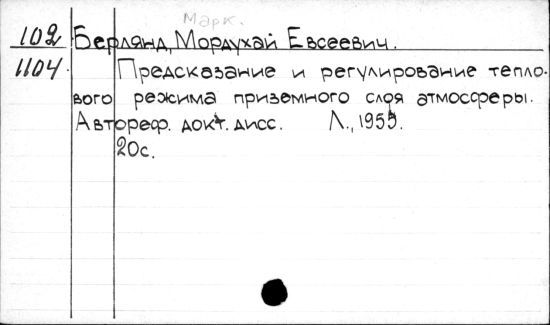 Марк.
102 Берлянд, Мордухай Евсеевич.
1104. Предсказание и регулирование тепло-
вого режима приземного слоя атмосферы.
Автореф. докт. дисс. Л., 1955.
20с.